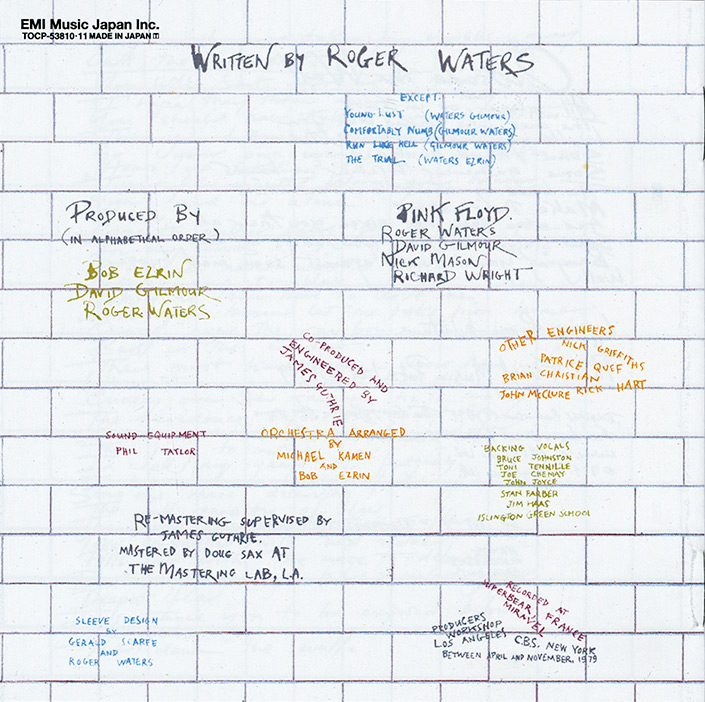 EMI Music Japan Inc.
TOCP-53810·11 MADE IN JAPAN
WRITTEN BY ROGER WATERS
EXCEPT.
YOUNG LUST (WATERS GILMOUR)
COMFORTABLY NUMB (GILMOUR WATERS)
RUN LIKE HELL (GILMOUR WATERS)
THE TRIAL (WATERS EZRIN)
PRODUCED BY
(IN ALPHABETICAL ORDER)
BOB EZRIN
DAVID GILMOUR
ROGER WATERS
PINK FLOYD.
ROGER WATERS
DAVID GILMOUR
NICK MASON
RICHARD WRIGHT
CO-PRODUCED AND
ENGINEERED BY
JAMES GUTHRIE
OTHER ENGINEERS
NICK GRIFFITHS
PATRICE QUEF
BRIAN CHRISTIAN
JOHN McCLURE RICK HART
SOUND EQUIPMENT
PHIL TAYLOR
ORCHESTRA ARRANGED
BY
MICHAEL KAMEN
AND
BOB EZRIN
BACKING VOCALS
BRUCE JOHNSTON
TONI TENNILLE
JOE CHEMAY
JOHN JOYCE
STAN FARBER
JIM HAAS
ISLINGTON GREEN SCHOOL
RE-MASTERING SUPERVISED BY
JAMES GUTHRIE.
MASTERED BY DOUG SAX AT
THE MASTERING LAB, L.A.
SLEEVE DESIGN
BY
GERALD SCARFE
AND
ROGER WATERS
RECORDED AT
SUPERBEAR, FRANCE
MIRAVEL
PRODUCERS
WORKSHOP
LOS ANGELES C.B.S. NEW YORK
BETWEEN APRIL AND NOVEMBER, 1979